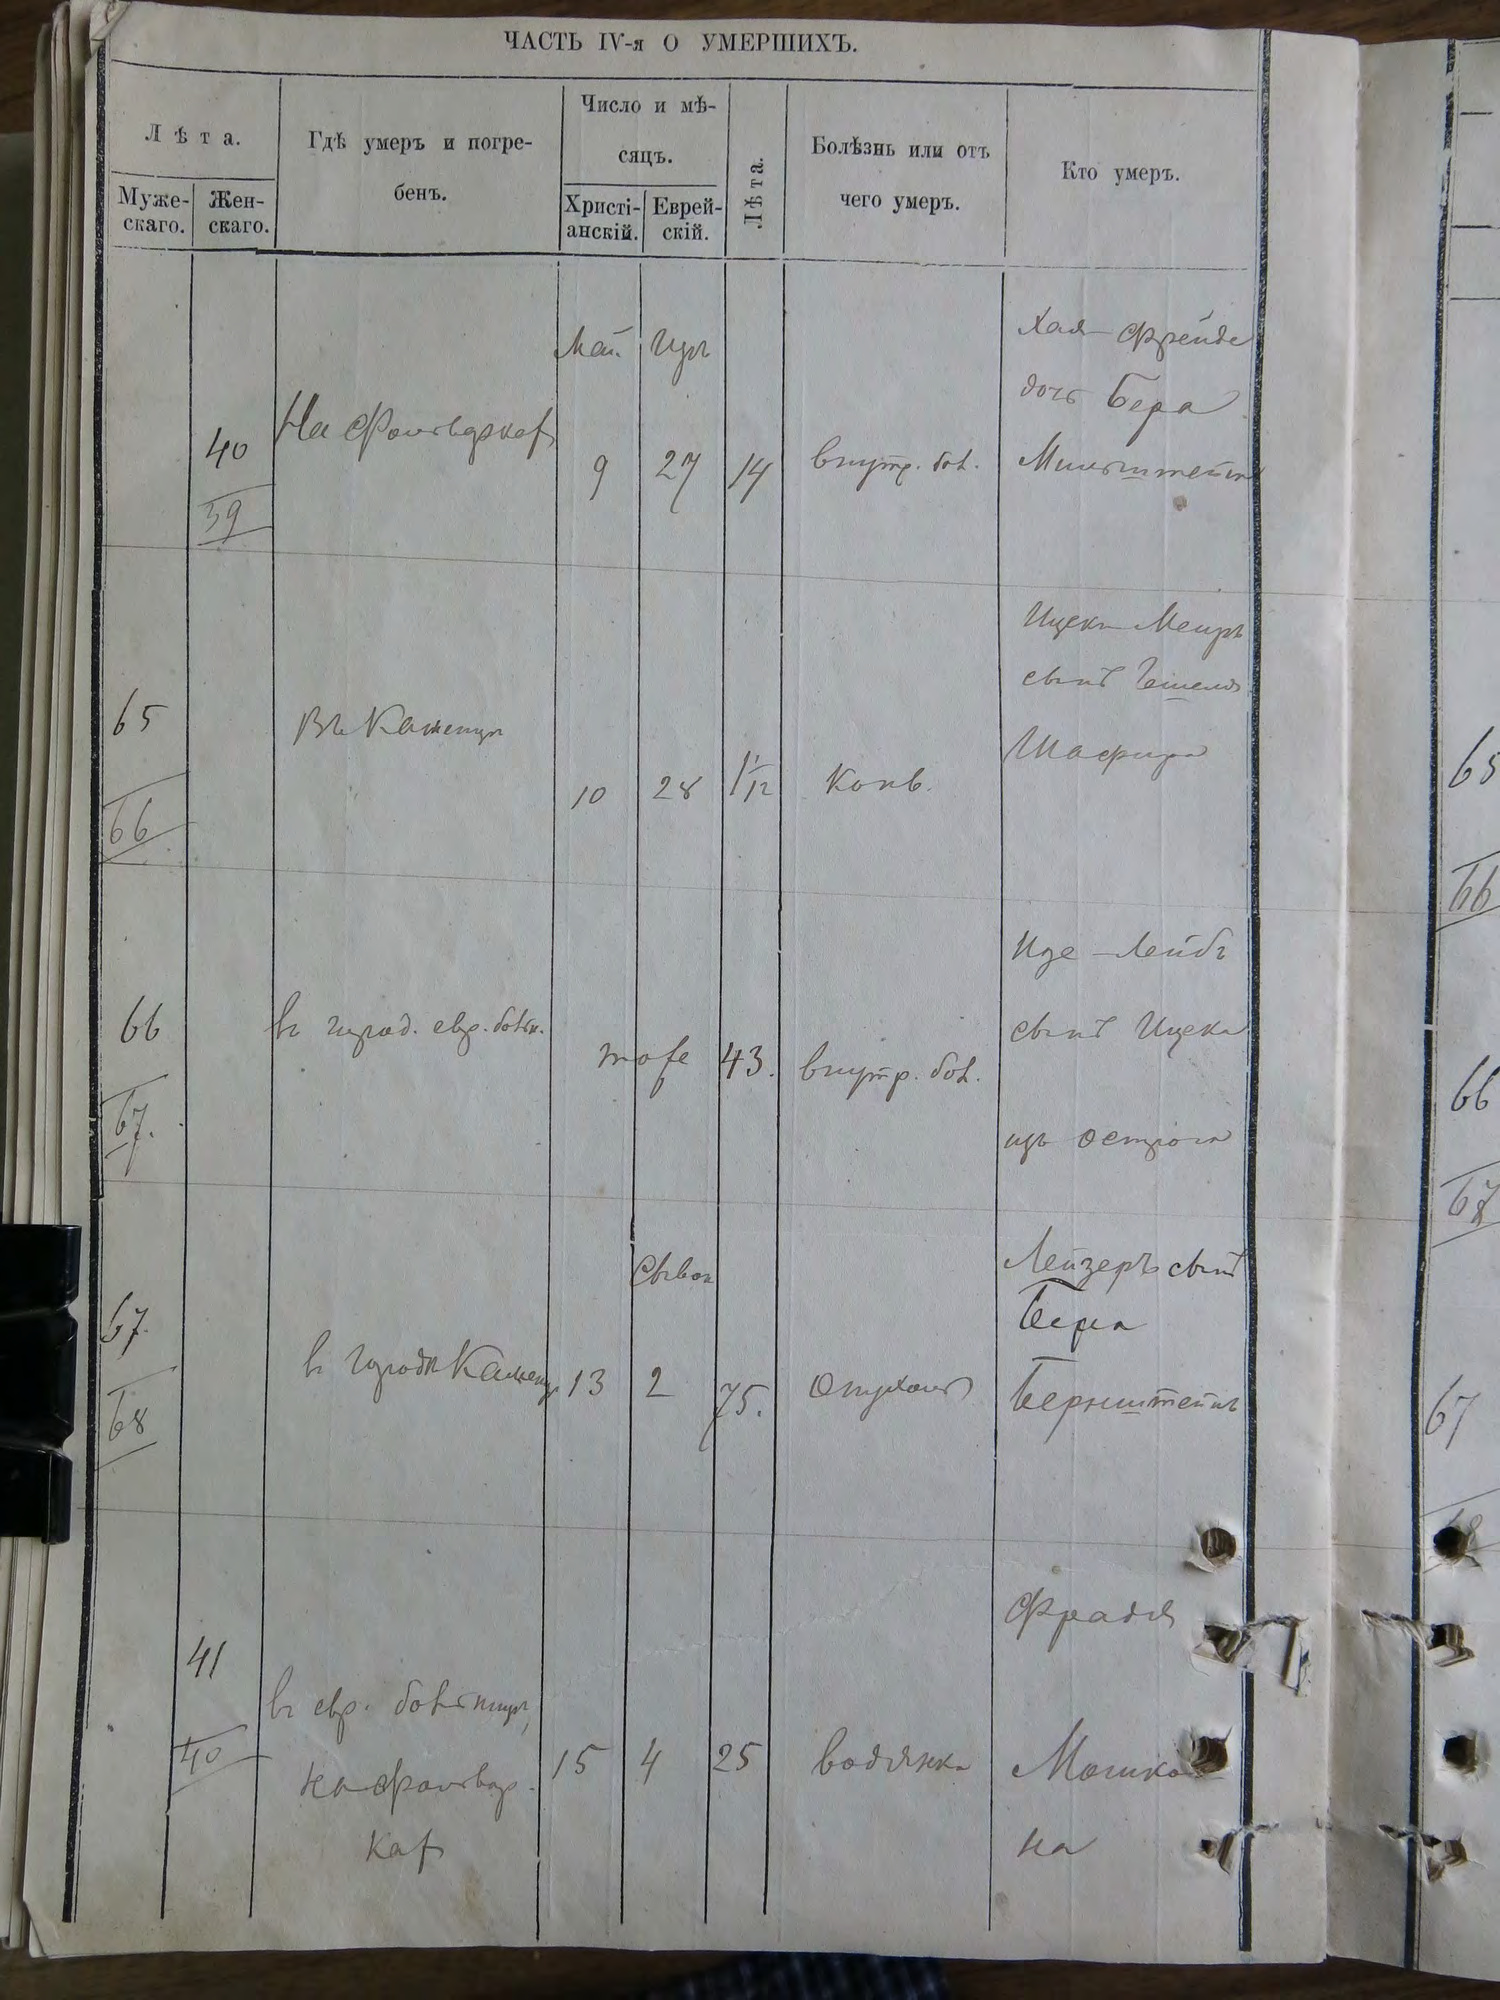 ЧАСТЬ IV-я О УМЕРШИХЪ.
Лѣта.
Муже-
скаго.
Жен-
скаго.
Гдѣ умеръ и погре-
бенъ.
Число и мѣ-
сяцъ.
Христі-
анскій.
Еврей-
скій.
Лѣта.
Болѣзнь или отъ
чего умеръ.
Кто умеръ.
40
39
На фольварках
Май
9
Іир
27
14
внутр. бол.
Хая Фрейда
дочь Бера
65
66
Въ Каменцѣ
10
28
1 1/12
конв.
Ицекъ Меиръ
сынъ
Шафира
66
67.
въ город. евр. больн.
тоже
43.
внутр. бол.
Лейбъ
сынъ Ицека
изъ Острога
67
68
въ городѣ Каменцѣ
13
Сывон
2
75.
Опухоль
Лейзеръ сынъ
Бера
Бернштейнъ
41
40
въ евр. больницѣ,
на фольвар-
ках
15
4
25
водянка
Фрадя
Мошко
на
65
66
66
67
67